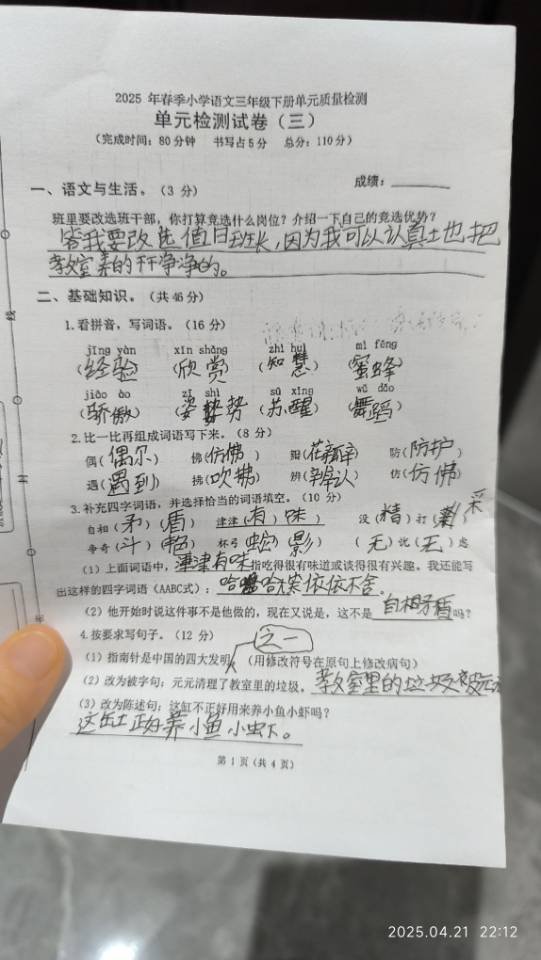 2025 年春季小学语文三年级下册单元质量检测
单元检测试卷（三）
（完成时间：80分钟 书写占5分 总分：110分）
成绩：
一、语文与生活。（3 分）
班里要改选班干部，你打算竞选什么岗位？介绍一下自己的竞选优势？
答我要改选值日班长，因为我可以认真土也把
教室弄的干净净的。
二、基础知识。（共46分）
1.看拼音，写词语。（16 分）
jīng yàn xīn shǎng zhì huì mì fēng
（经验） （欣赏） （知慧） （蜜蜂）
jiāo ào zī shì sū xǐng wǔ dǎo
（骄傲） （姿势） （苏醒） （舞蹈）
2.比一比再组成词语写下来。（8 分）
偶（偶尔） 佛（仿佛） 瓣（花瓣） 防（防护）
遇（遇到） 拂（吹拂） 辨（辨认） 仿（仿佛）
3.补充四字词语，并选择恰当的词语填空。（10 分）
自相（矛）（盾） 津津（有）（味） 没（精）打（采）
争奇（斗）（艳） 杯弓（蛇）（影） （无）忧（无）虑
（1）上面词语中，津津有味指吃得很有味道或谈得很有兴趣。我还能写
出这样的四字词语（AABC式）：依依不舍.
（2）他开始时说这件事不是他做的，现在又说是，这不是自相矛盾吗？
4.按要求写句子。（12 分）
之一
（1）指南针是中国的四大发明。（用修改符号在原句上修改病句）
（2）改为被字句：元元清理了教室里的垃圾。教室里的垃圾被元元
（3）改为陈述句：这缸不正好用来养小鱼小虾吗？
这缸正好养小鱼小虾。
第 1 页（共 4 页）
2025.04.21 22:12